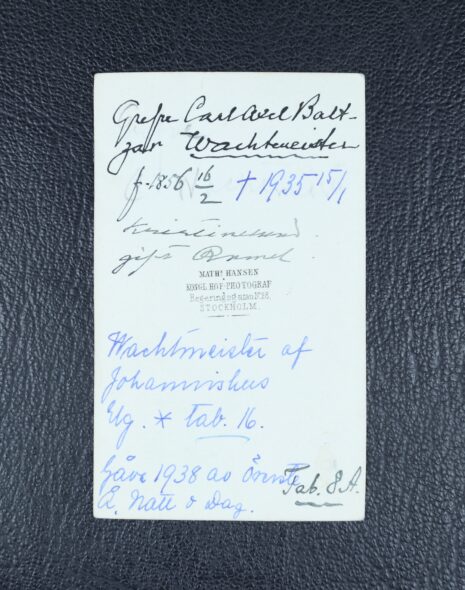 Grefve Carl Axel Balt-
zar Wachtmeister
f. 1856 16/2 † 1935 15/1
Kristinelund
gift Ramel
MATHS HANSEN
KONGL. HOF-PHOTOGRAF
Regeringsgatan No 28.
STOCKHOLM.
Wachtmeister af
Johannishus
Elg. * tab. 16.
Gåva 1938 av Överste
Å. Natt o Dag.
Tab. 8 A.